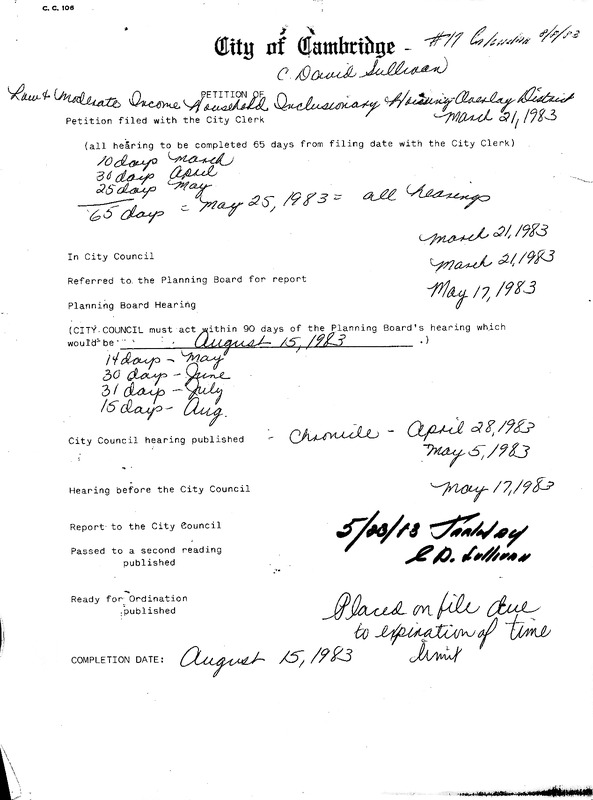 C. C. 106
City of Cambridge - #17 Calendar 8/8/83
C. David Sullivan
PETITION OF
Low & Moderate Income Household Inclusionary Housing Overlay District
Petition filed with the City Clerk March 21, 1983
(all hearing to be completed 65 days from filing date with the City Clerk)
10 days March
30 days April
25 days May
65 days = May 25, 1983 = all hearings
March 21, 1983
In City Council
March 21, 1983
Referred to the Planning Board for report
May 17, 1983
Planning Board Hearing
(CITY COUNCIL must act within 90 days of the Planning Board's hearing which
would be August 15, 1983 .)
14 days - May
30 days - June
31 days - July
15 days - Aug.
City Council hearing published - Chronicle - April 28, 1983
May 5, 1983
Hearing before the City Council May 17, 1983
Report to the City Council
5/23/83
Passed to a second reading
published
C D. Sullivan
Ready for Ordination
published
Placed on file due
to expiration of time
limit
COMPLETION DATE: August 15, 1983